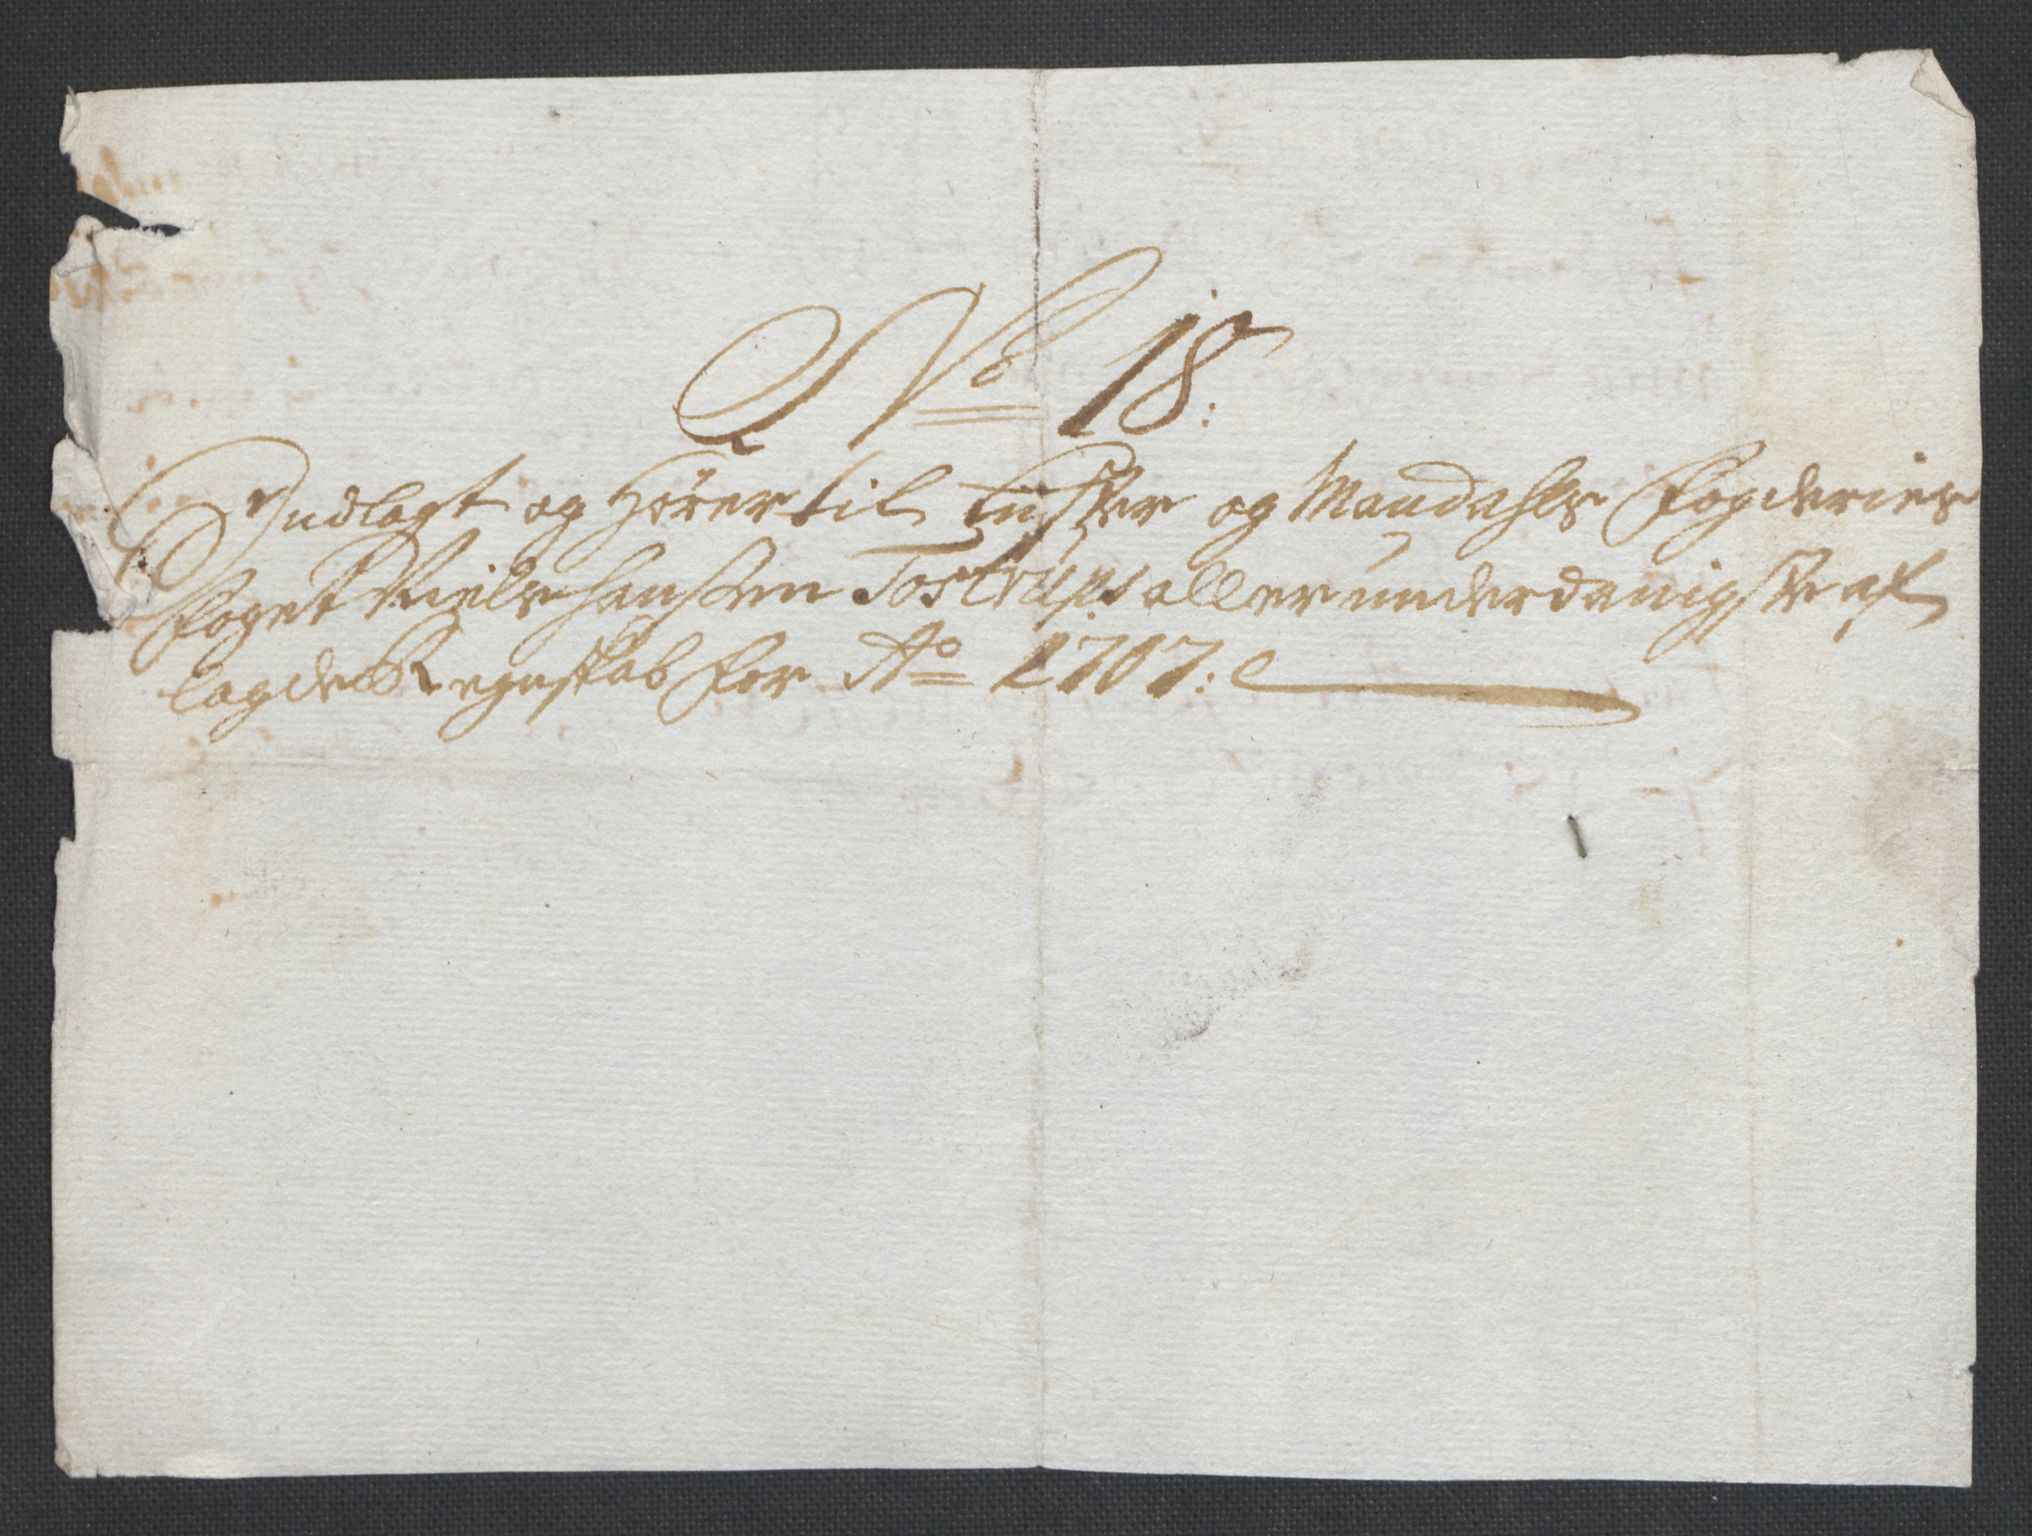 No 18:
Indlagt og Hörer til Lister og Mandahls Fogderies
Foget Niels Hanssen Tostrups allerunderdanigste af
lagde Regnskab for Ao 1707: